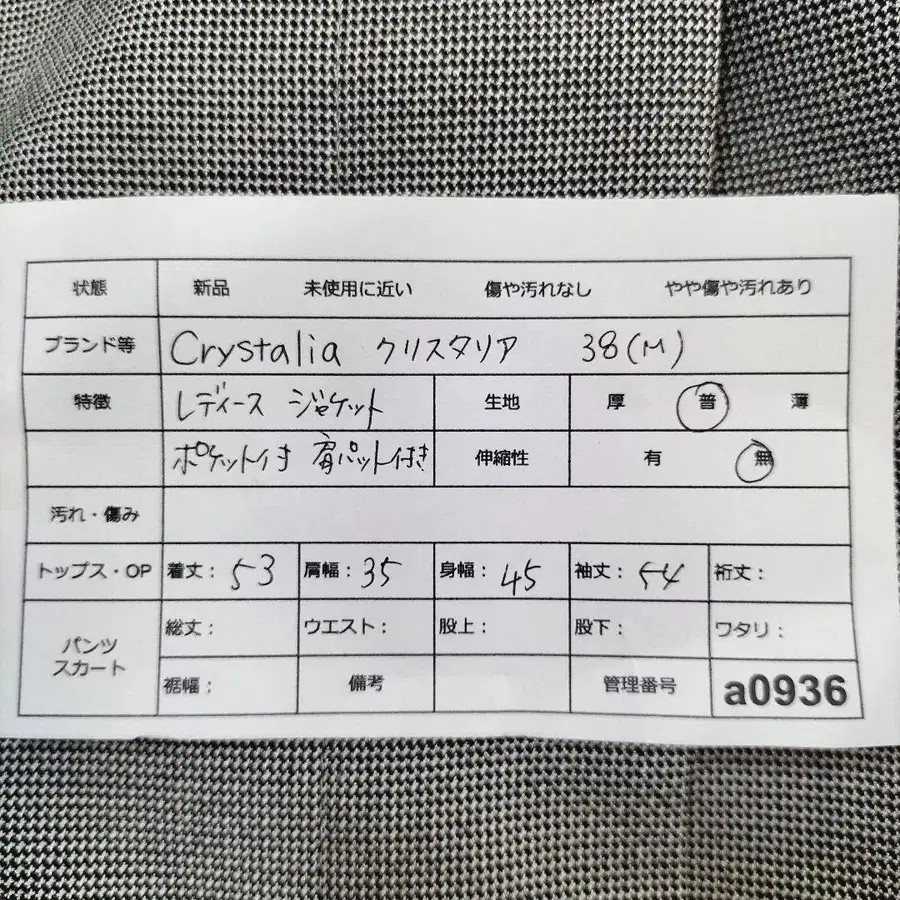 状態 新品 未使用に近い 傷や汚れなし やや傷や汚れあり
ブランド等 Crystalia クリスタリア 38(M)
特徴 レディース ジャケット 生地 厚 普 薄
ポケット付き 肩パット付き 伸縮性 有 無
汚れ・傷み
トップス・OP 着丈: 53 肩幅: 35 身幅: 45 袖丈: 54 裄丈:
パンツ スカート 総丈: ウエスト: 股上: 股下: ワタリ:
裾幅: 備考 管理番号 a0936